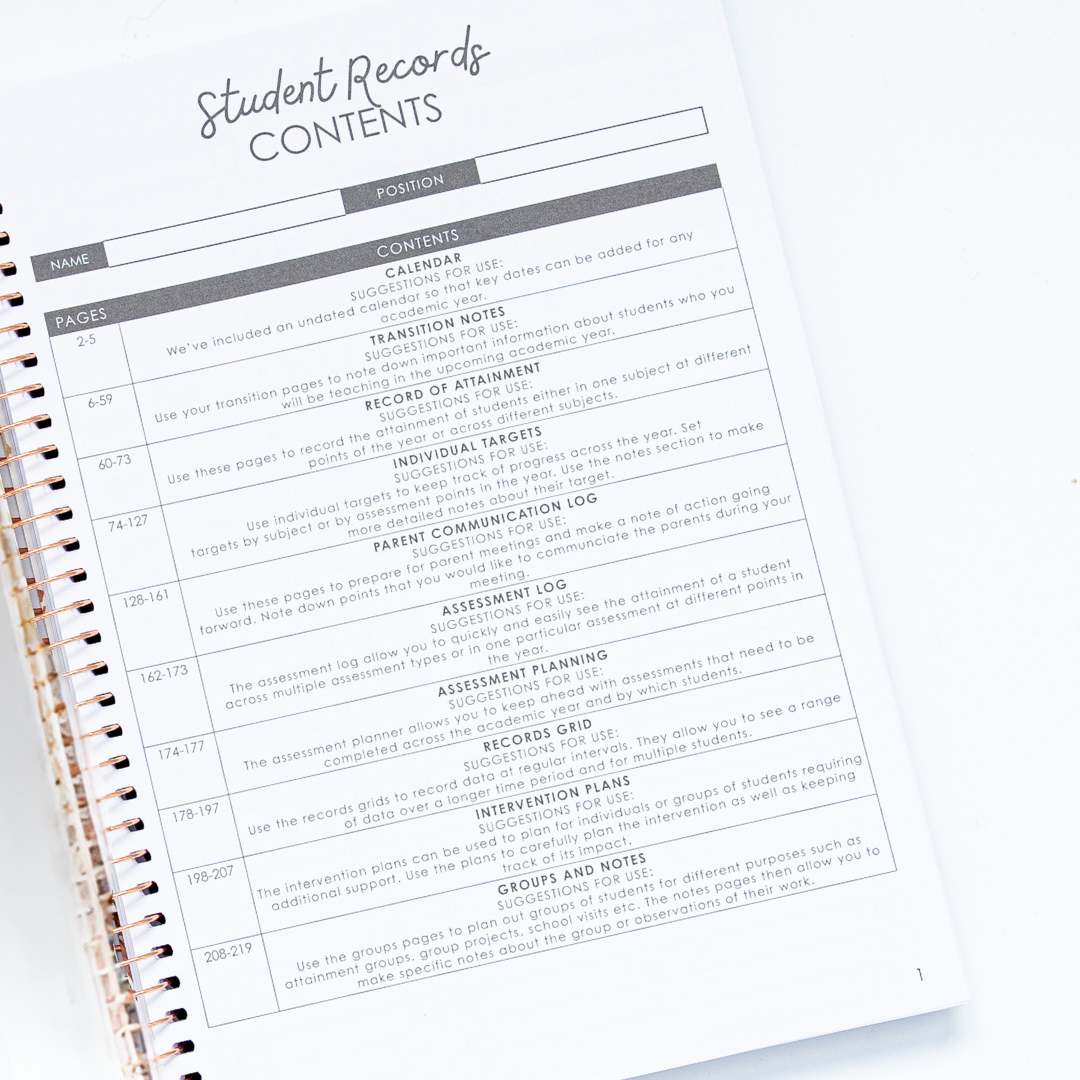 Student Records
CONTENTS
NAME
POSITION
PAGES
CONTENTS
2-5
CALENDAR
SUGGESTIONS FOR USE:
We've included an undated calendar so that key dates can be added for any
academic year.
6-59
TRANSITION NOTES
SUGGESTIONS FOR USE:
Use your transition pages to note down important information about students who you
will be teaching in the upcoming academic year.
60-73
RECORD OF ATTAINMENT
SUGGESTIONS FOR USE:
Use these pages to record the attainment of students either in one subject at different
points of the year or across different subjects.
74-127
INDIVIDUAL TARGETS
SUGGESTIONS FOR USE:
Use individual targets to keep track of progress across the year. Set
targets by subject or by assessment points in the year. Use the notes section to make
more detailed notes about their target.
128-161
PARENT COMMUNICATION LOG
SUGGESTIONS FOR USE:
Use these pages to prepare for parent meetings and make a note of action going
forward. Note down points that you would like to communciate the parents during your
meeting.
162-173
ASSESSMENT LOG
SUGGESTIONS FOR USE:
The assessment log allow you to quickly and easily see the attainment of a student
across multiple assessment types or in one particular assessment at different points in
the year.
174-177
ASSESSMENT PLANNING
SUGGESTIONS FOR USE:
The assessment planner allows you to keep ahead with assessments that need to be
completed across the academic year and by which students.
178-197
RECORDS GRID
SUGGESTIONS FOR USE:
Use the records grids to record data at regular intervals. They allow you to see a range
of data over a longer time period and for multiple students.
198-207
INTERVENTION PLANS
SUGGESTIONS FOR USE:
The intervention plans can be used to plan for individuals or groups of students requiring
additional support. Use the plans to carefully plan the intervention as well as keeping
track of its impact.
208-219
GROUPS AND NOTES
SUGGESTIONS FOR USE:
Use the groups pages to plan out groups of students for different purposes such as
attainment groups, group projects, school visits etc. The notes pages then allow you to
make specific notes about the group or observations of their work.
1